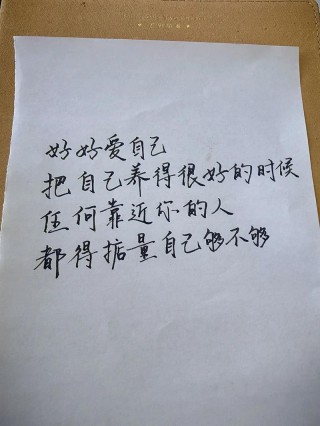 好好爱自己
把自己养得很好的时候
任何靠近你的人
都得掂量自己够不够